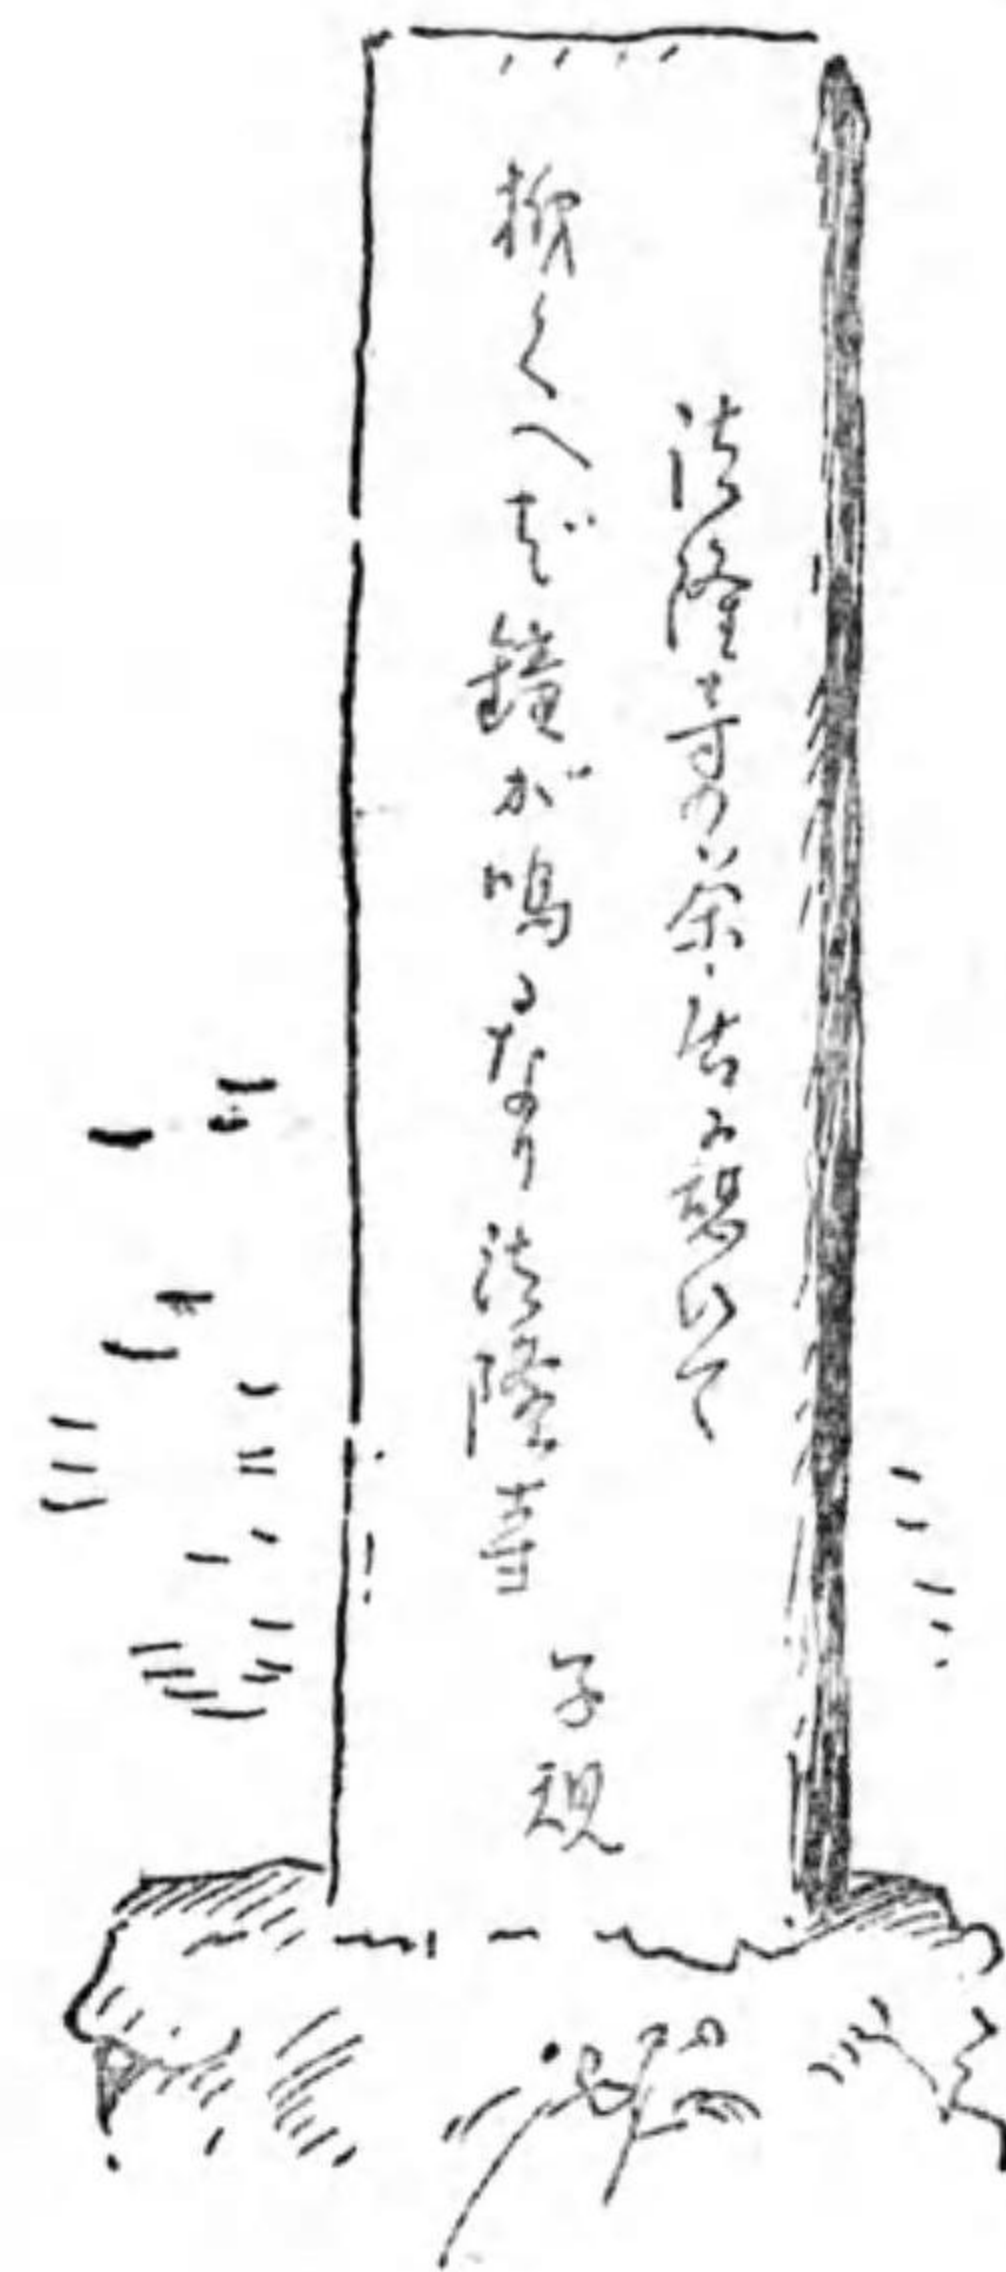 法隆寺の茶店に憩ひて
柿くへば鐘が鳴るなり法隆寺
子規